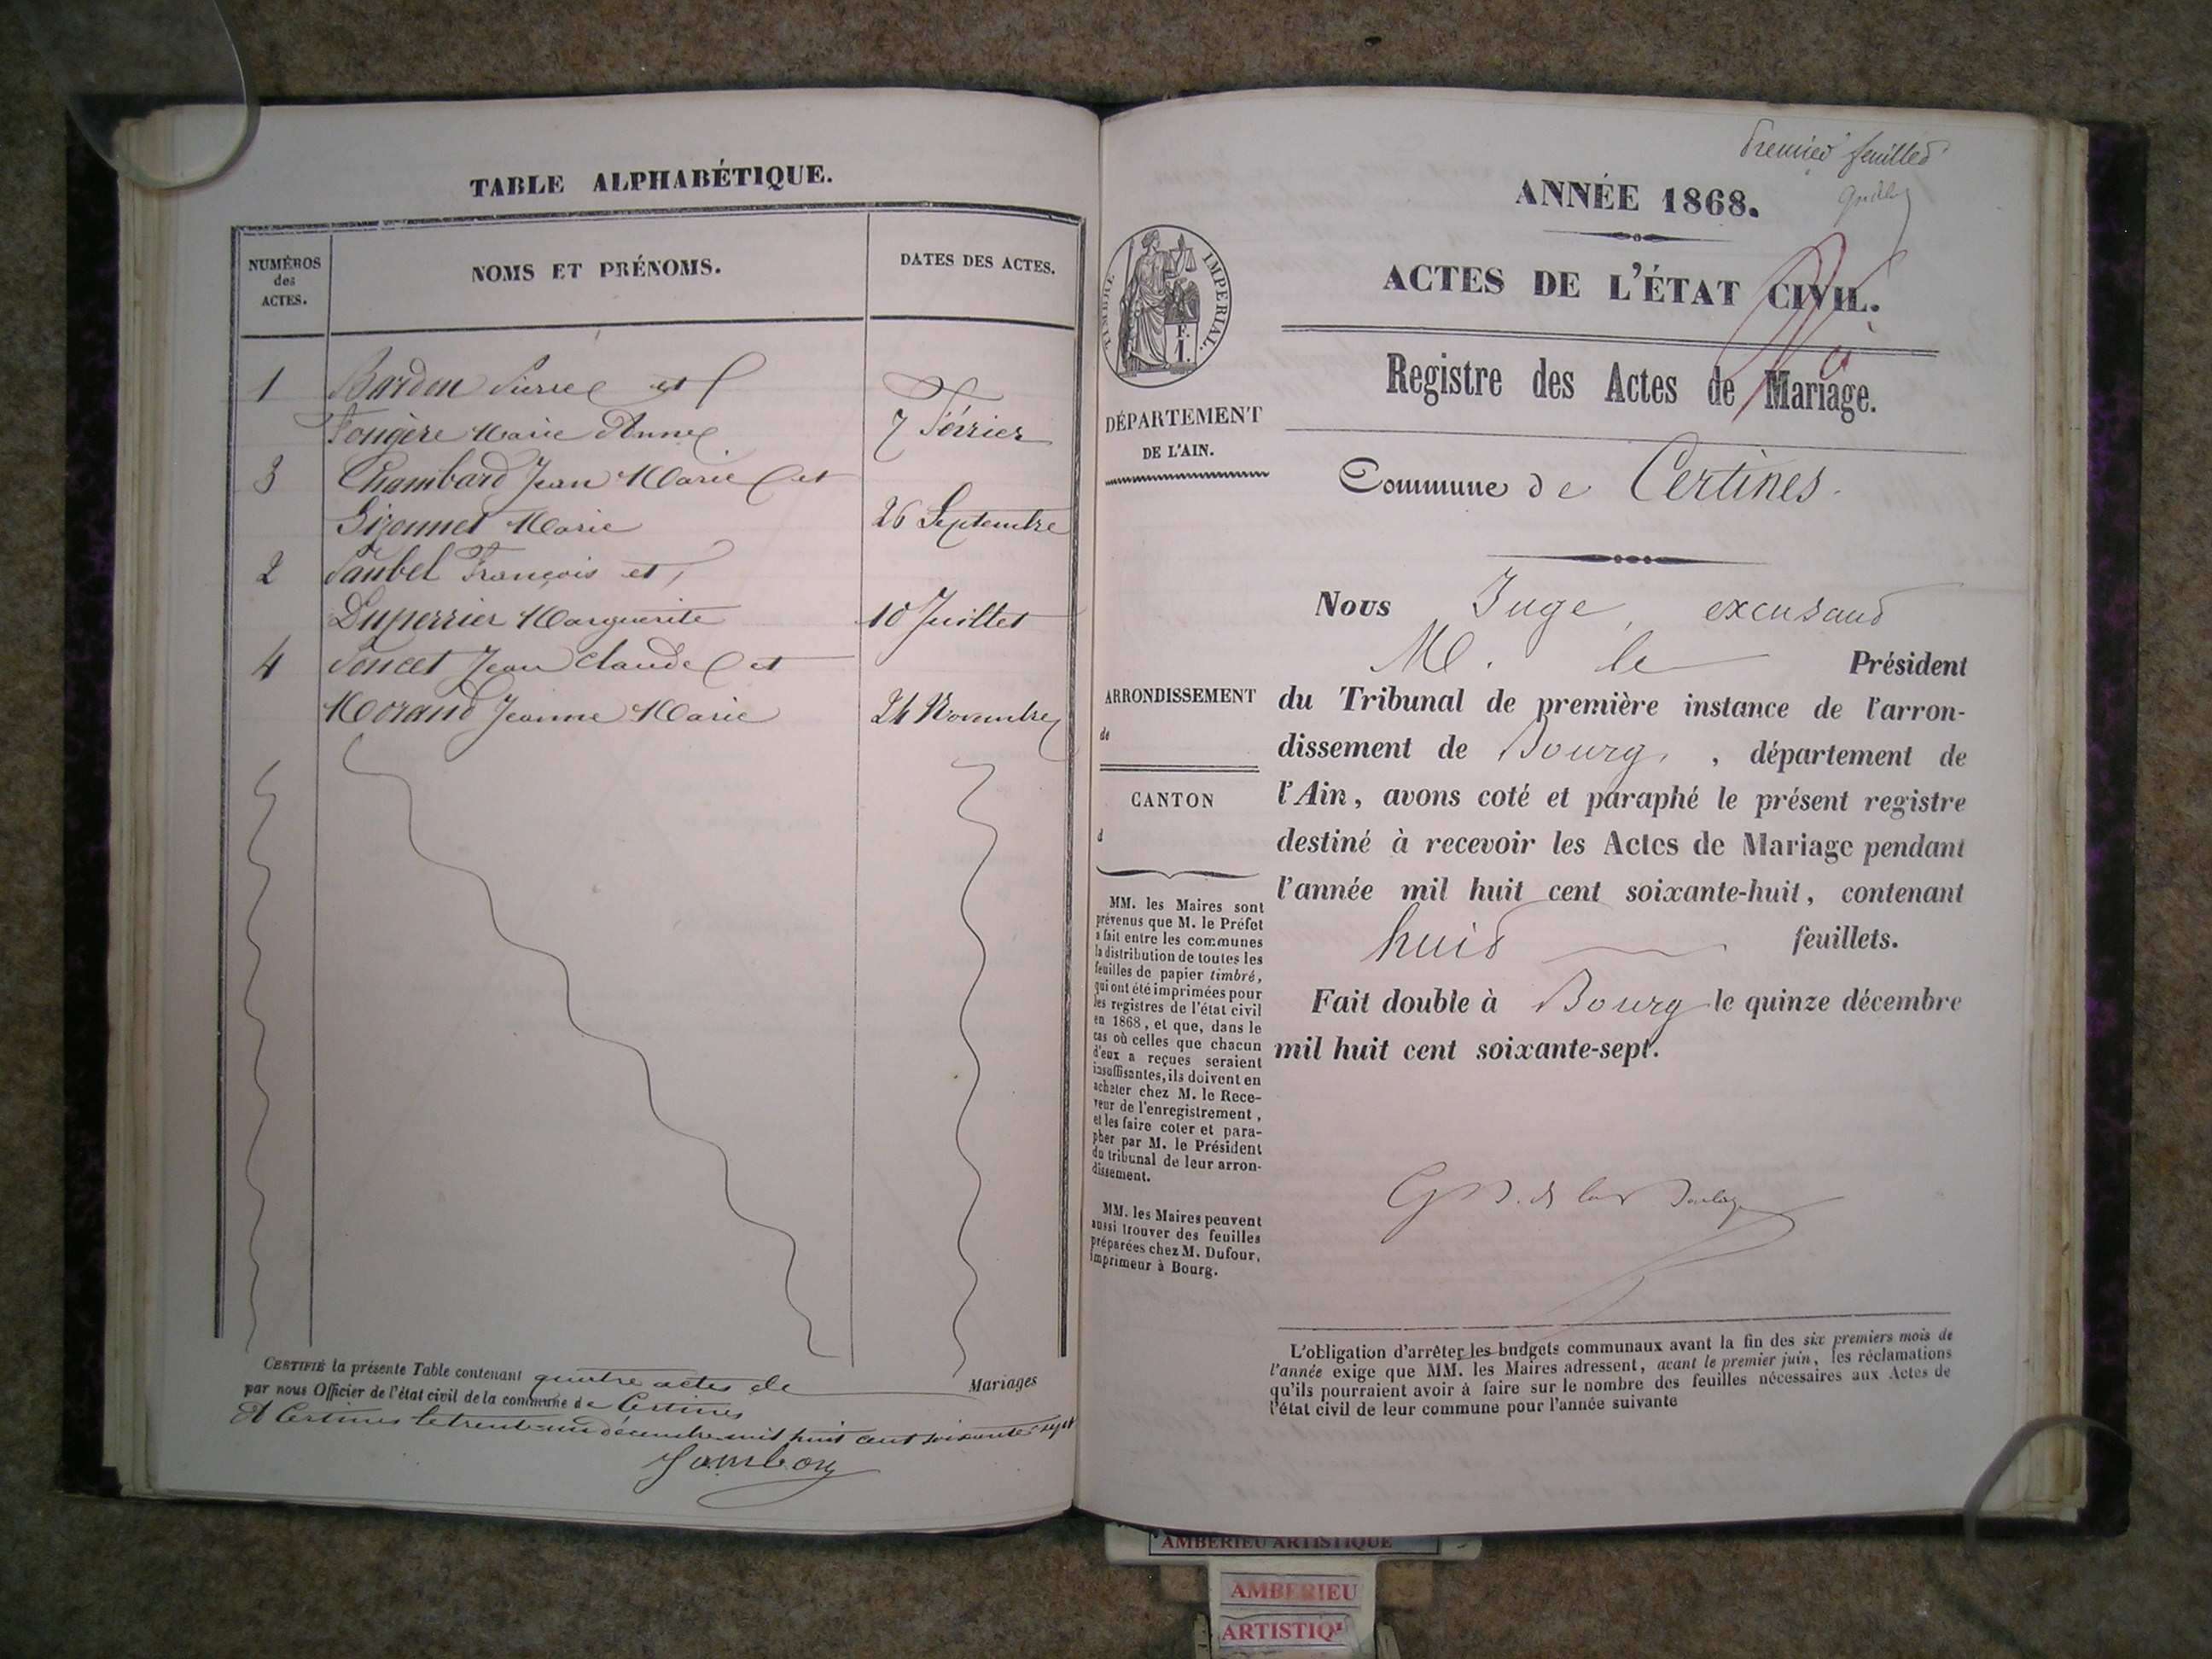 TABLE ALPHABÉTIQUE.
NUMÉROS des ACTES.
NOMS ET PRÉNOMS.
DATES DES ACTES.
1 Bardon Pierre et
Fougère Marie Anne 7 Février
3 Chambard Jean Marie et
Marie 26 Septembre
2 François et
Duperrier Marguerite 10 Juillet
4 Poncet Jean Claude et
Morand Jeanne Marie 24 Novembre
CERTIFIÉ la présente Table contenant quatre actes de Mariages
par nous Officier de l'état civil de la commune de Certines
A Certines le trente un décembre mil huit cent soixante sept
Premier feuillet
ANNÉE 1868.
ACTES DE L'ÉTAT CIVIL.
Registre des Actes de Mariage.
Commune de Certines.
TIMBRE IMPERIAL.
F.
1.
DÉPARTEMENT
DE L'AIN.
ARRONDISSEMENT
de
CANTON
d
MM. les Maires sont
prévenus que M. le Préfet
a fait entre les communes
la distribution de toutes les
feuilles de papier timbré,
qui ont été imprimées pour
les registres de l'état civil
en 1868, et que, dans le
cas où celles que chacun
d'eux a reçues seraient
insuffisantes, ils doivent en
acheter chez M. le Rece-
veur de l'enregistrement,
et les faire coter et para-
pher par M. le Président
du tribunal de leur arron-
dissement.
MM. les Maires peuvent
aussi trouver des feuilles
préparées chez M. Dufour,
imprimeur à Bourg.
Nous Juge, excusant
M. le Président
du Tribunal de première instance de l'arron-
dissement de Bourg, , département de
l'Ain, avons coté et paraphé le présent registre
destiné à recevoir les Actes de Mariage pendant
l'année mil huit cent soixante-huit, contenant
huit feuillets.
Fait double à Bourg le quinze décembre
mil huit cent soixante-sept.
L'obligation d'arrêter les budgets communaux avant la fin des six premiers mois de
l'année exige que MM. les Maires adressent, avant le premier juin, les réclamations
qu'ils pourraient avoir à faire sur le nombre des feuilles nécessaires aux Actes de
l'état civil de leur commune pour l'année suivante
AMBERIEU ARTISTIQUE
AMBERIEU
ARTISTIQU